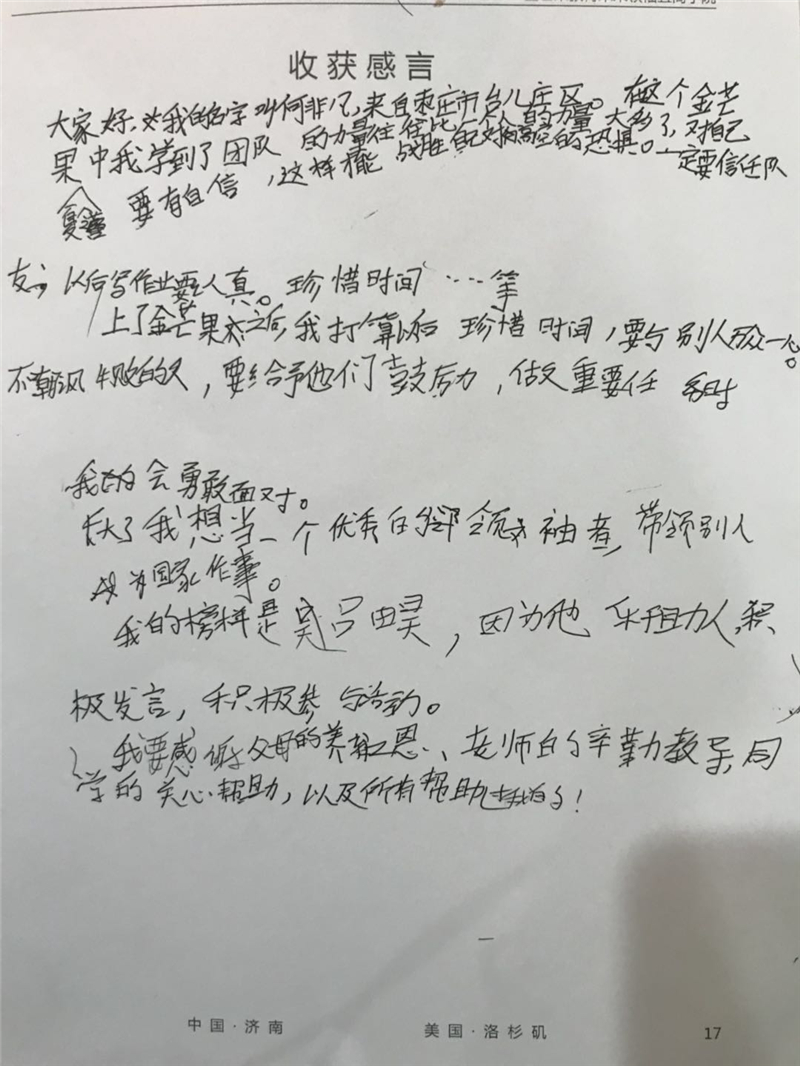 收获感言
大家好，我的名字叫何非凡，来自枣庄市台儿庄区。在这个金芒
果中我学到了团队的力量往往比一个人的力量大多了，对自己
要有自信，这样才能战胜自己对高空的恐惧。一定要信任队
友，以后写作业要认真。珍惜时间……等
上了金芒果之后，我打算以后珍惜时间，要与别人万众一心。
不嘲讽失败的人，要给予他们鼓励，做重要任务时
我会勇敢面对。
长大了我想当一个优秀的领袖者，带领别人
为国家作事。
我的榜样是吴吕由昊，因为他乐助人，积
极发言，积极参与活动。
我要感谢父母的养育之恩、老师的辛勤教导，同
学的关心帮助，以及所有帮助过我的！
中国·济南
美国·洛杉矶
17